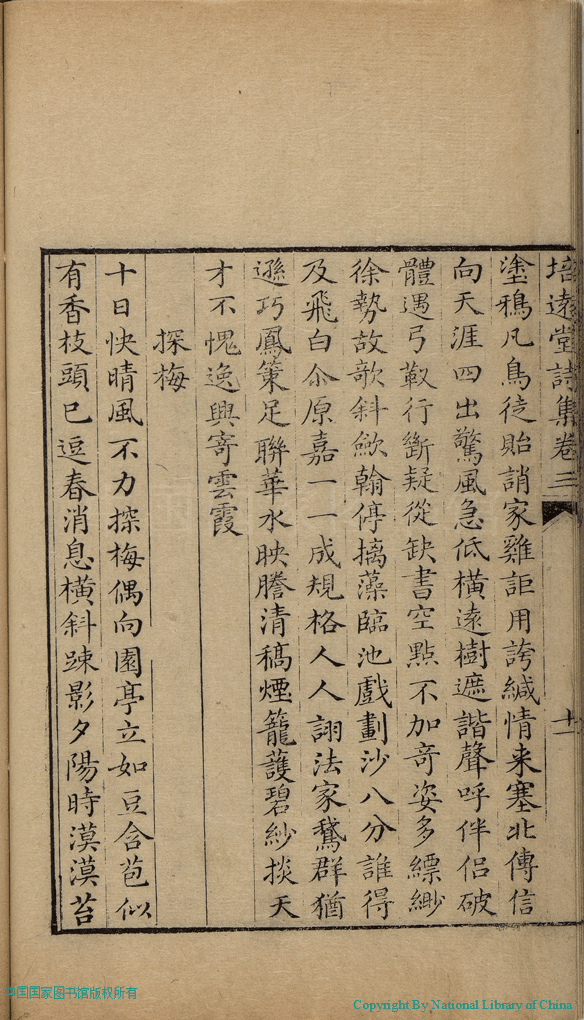 培遠堂詩集卷三 十一
塗鴉凡鳥徒貽誚家雞詎用誇緘情来塞北傳信
向天涯四出驚風急低橫遠樹遮諧聲呼伴侣破
體遇弓靫行斷疑從缺書空點不加奇姿多縹緲
徐勢故欹斜歛翰停摛藻臨池戲劃沙八分誰得
及飛白尒原嘉一一成規格人人詡法家鵞群猶
遜巧鳳篆足聯華水映謄清稿煙籠護碧紗掞天
才不愧逸興寄雲霞
探梅
十日快晴風不力探梅偶向園亭立如豆含苞似
有香枝頭已逗春消息橫斜踈影夕陽時漠漠苔
中国国家图书馆版权所有
Copyright By National Library of China